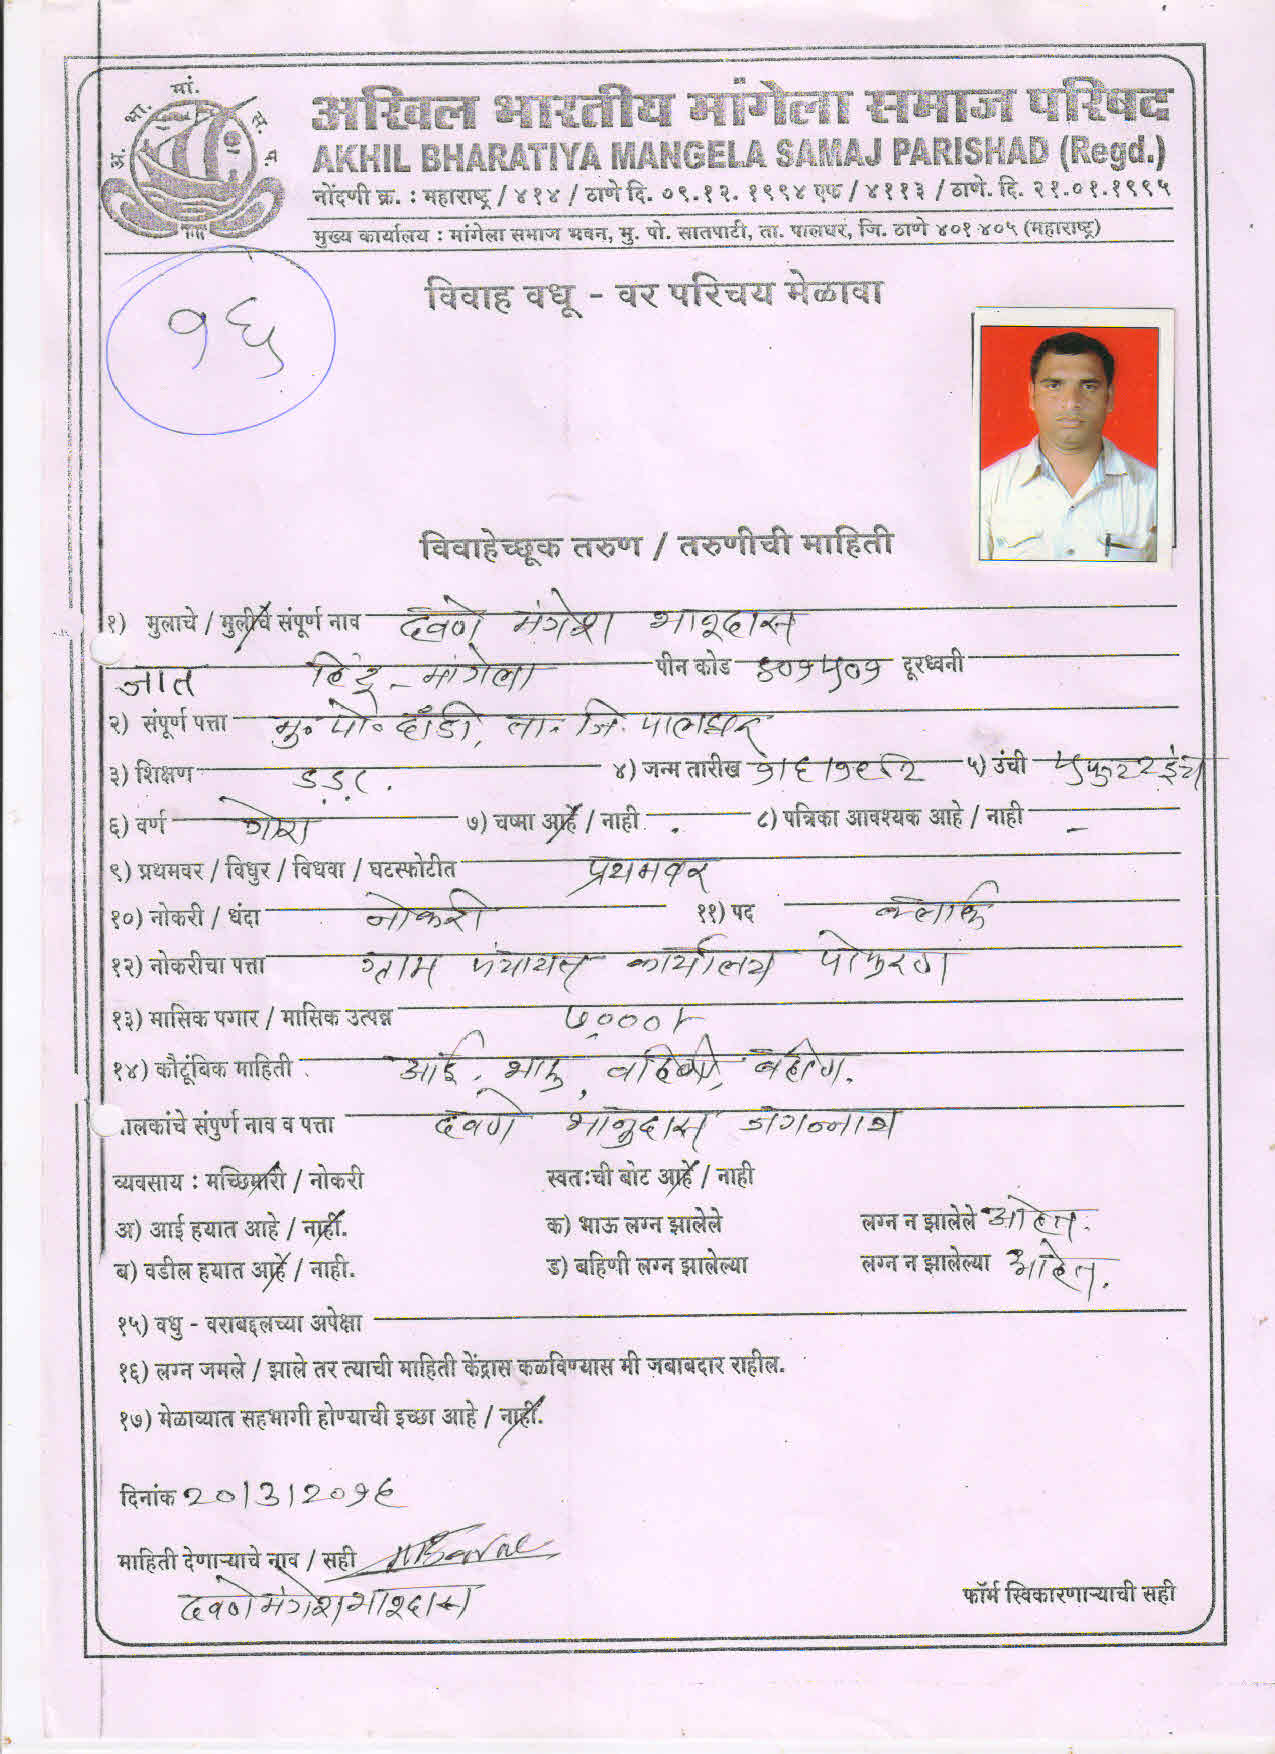 अ. भा. मां. स. प.
अखिल भारतीय मांगेला समाज परिषद
AKHIL BHARATIYA MANGELA SAMAJ PARISHAD (Regd.)
नोंदणी क्र. : महाराष्ट्र / ४१४ / ठाणे दि. ०९.१२. १९९४ एफ / ४११३ / ठाणे. दि. २१.०१.१९९५
मुख्य कार्यालय : मांगेला समाज भवन, मु. पो. सातपाटी, ता. पालघर, जि. ठाणे ४०१ ४०५ (महाराष्ट्र)
१६
विवाह वधू - वर परिचय मेळावा
विवाहेच्छूक तरुण / तरुणीची माहिती
१) मुलाचे / मुलीचे संपूर्ण नाव दवणे मंगेश भानुदास
जात हिंदू - मांगेला पीन कोड ४०१५०१ दूरध्वनी
२) संपूर्ण पत्ता मु. पो. दांडी, ता. जि. पालघर
३) शिक्षण ४) जन्म तारीख ५) उंची
६) वर्ण गोरा ७) चष्मा आहे / नाही . ८) पत्रिका आवश्यक आहे / नाही -
९) प्रथमवर / विधुर / विधवा / घटस्फोटीत प्रथमवर
१०) नोकरी / धंदा नोकरी ११) पद क्लार्क
१२) नोकरीचा पत्ता ग्राम पंचायत कार्यालय पोफरण
१३) मासिक पगार / मासिक उत्पन्न
१४) कौटूंबिक माहिती आई, भाऊ, वहिनी, बहीण.
पालकांचे संपुर्ण नाव व पत्ता दवणे भानुदास जगन्नाथ
व्यवसाय : मच्छिमारी / नोकरी स्वतःची बोट आहे / नाही
अ) आई हयात आहे / नाही. क) भाऊ लग्न झालेले लग्न न झालेले आहेत.
ब) वडील हयात आहे / नाही. ड) बहिणी लग्न झालेल्या लग्न न झालेल्या आहेत.
१५) वधु - वराबद्दलच्या अपेक्षा
१६) लग्न जमले / झाले तर त्याची माहिती केंद्रास कळविण्यास मी जबाबदार राहील.
१७) मेळाव्यात सहभागी होण्याची इच्छा आहे / नाही.
दिनांक २०/३/२०१६
माहिती देणाऱ्याचे नाव / सही
दवणे मंगेश भानुदास
फॉर्म स्विकारणाऱ्याची सही